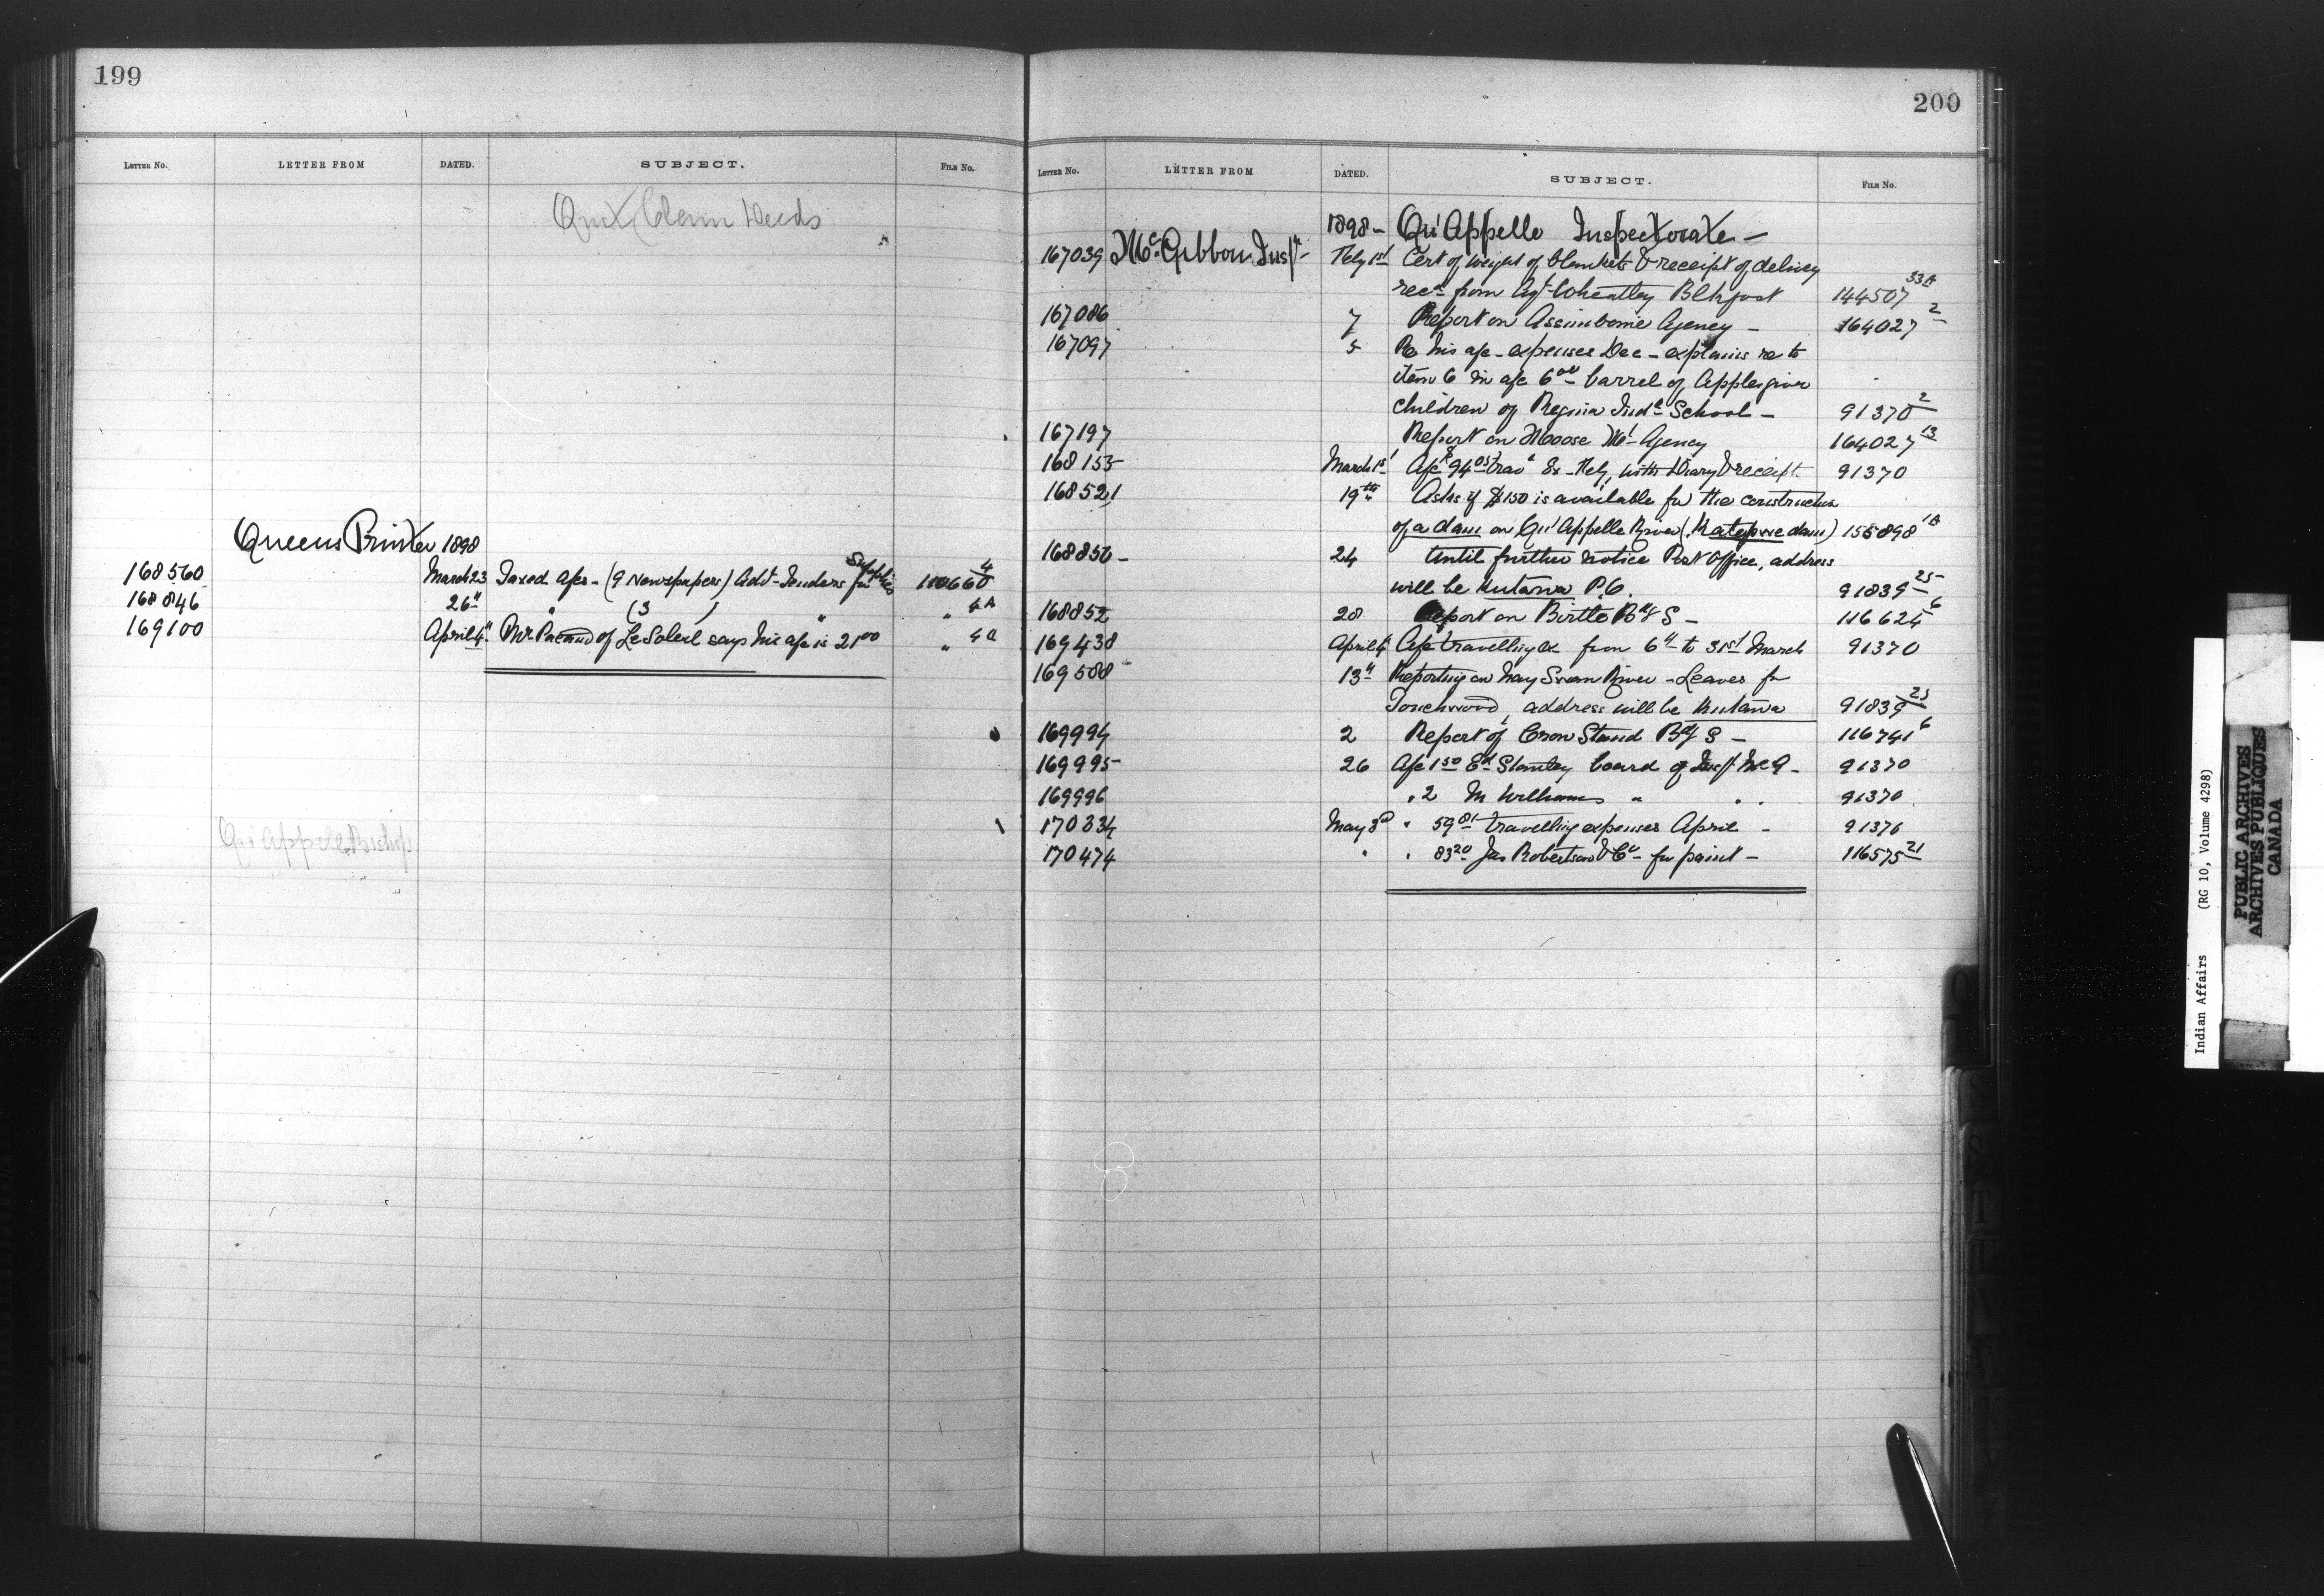 199
LETTER NO. LETTER FROM DATED. SUBJECT. FILE No.
Quit Claim Deeds
Queens Printer 1898
168560 March 23 Taxed a/cs - (9 Newspapers) Advt Tenders for Supplies 110660 4
168846 26" " (3 ) " " 4A
169100 April 4" Mr Pacaud of Le Soleil says his a/c is 21 00 " 4A
Qu'Appelle Bishop
200
LETTER NO. LETTER FROM DATED. SUBJECT. FILE No.
1898 - Qu'Appelle Inspectorate -
167039 McGibbon Insp. Feby 1st Cert of weight of blankets & receipt of delivery
recd from Agt Wheatley Blkfoot 144507 33A
167086 7 Report on Assiniboine Agency - 164027 2
167097 5 Re his a/c - expenses Dec - explains re to
item 6 in a/c 6 00 barrel of Apples given
children of Regina Indl School - 91370 2
167197 Report on Moose Mt Agency 164027 13
168155 March 1st A/c $94 05 trav Ex - Feby, with Diary & receipt 91370
168521 19th Asks if $150 is available for the construction
of a dam on Qu'Appelle River (Katepwe dam) 155898 1A
168850 - 24 Until further notice Post Office, address
will be Kutawa P.O. 91839 25
168852 28 Report on Birtle Bdg S - 116624 6
169438 April 4" A/c travelling ex from 6th to 31st March 91370
169588 13" Reporting on way Swan River - Leaves for
Touchwood, address will be Kutawa 91839 25
169994 2 Report of Crow Stand Bdg S - 116741 6
169995 26 A/c 1 50 Ed Stanley board of Insp McG - 91370
169996 " 2 M Williams " " 91370
170334 May 3d " 59 81 travelling expenses April - 91370
170474 " " 83 20 Jas Robertson & Co - for paint - 116575 21
Indian Affairs (RG 10, Volume 4298)
PUBLIC ARCHIVES
ARCHIVES PUBLIQUES
CANADA